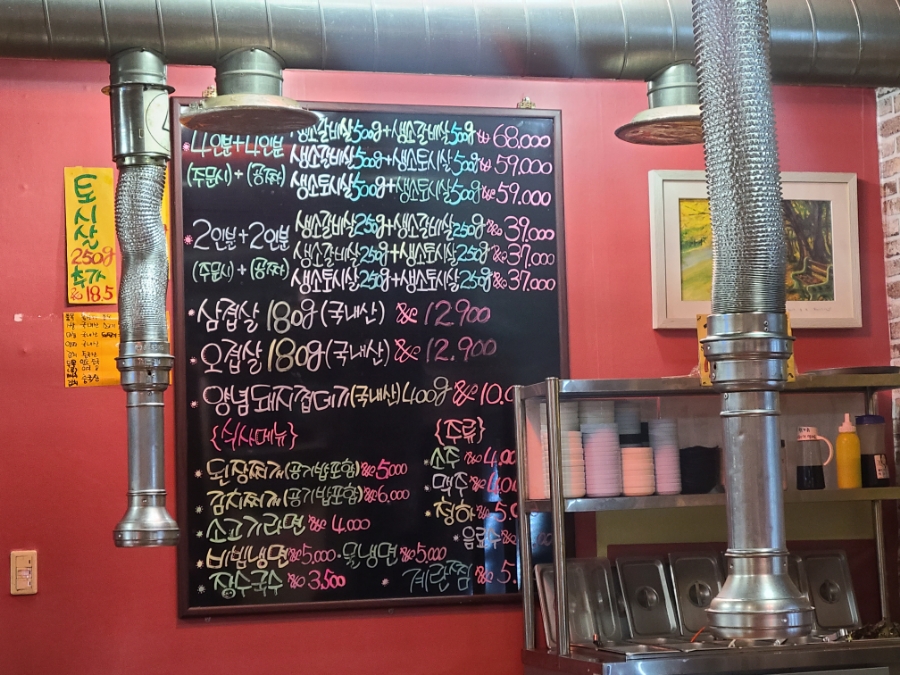 *4인분+4인분 생소갈비살500g+생소갈비살500g ₩68.000
생소갈비살500g+생소토시살500g ₩59.000
(주문시) + (공짜)
생소토시살500g+생소토시살500g ₩59.000
*2인분+2인분 생소갈비살250g+생소갈비살250g ₩39.000
생소갈비살250g+생소토시살250g ₩37.000
(주문시) + (공짜)
생소토시살250g+생소토시살250g ₩37.000
•삼겹살 180g(국내산) ₩12.900
•오겹살 180g(국내산) ₩12.900
•양념돼지껍데기(국내산)400g ₩10.0
{식사메뉴}
*된장찌개(공기밥포함)₩5,000
*김치찌개(공기밥포함)₩6,000
*소고기라면 ₩4,000
*비빔냉면₩5,000•물냉면₩5,000
*잔수국수 ₩3,500
{주류}
*소주 ₩4.00
*맥주 ₩4.00
*청하 ₩5.0
*음료수
*계란찜 ₩5.
토시살
250g
추가
₩18.5